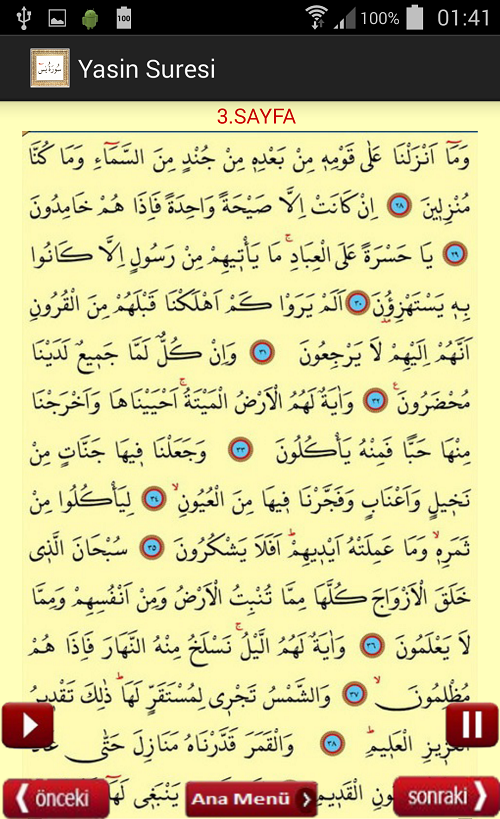 100
100%
01:41
Yasin Suresi
3.SAYFA
وَمَٓا اَنْزَلْنَا عَلٰى قَوْمِه۪ مِنْ بَعْدِه۪ مِنْ جُنْدٍ مِنَ السَّمَٓاءِ وَمَا كُنَّا
مُنْزِل۪ينَ ﴿٢٨﴾ اِنْ كَانَتْ اِلَّا صَيْحَةً وَاحِدَةً فَاِذَا هُمْ خَامِدُونَ
﴿٢٩﴾ يَا حَسْرَةً عَلَى الْعِبَادِۚ مَا يَأْت۪يهِمْ مِنْ رَسُولٍ اِلَّا كَانُوا
بِه۪ يَسْتَهْزِؤُ۫نَ ﴿٣٠﴾ اَلَمْ يَرَوْا كَمْ اَهْلَكْنَا قَبْلَهُمْ مِنَ الْقُرُونِ
اَنَّهُمْ اِلَيْهِمْ لَا يَرْجِعُونَ ﴿٣١﴾ وَاِنْ كُلٌّ لَمَّا جَم۪يعٌ لَدَيْنَا
مُحْضَرُونَ۟ ﴿٣٢﴾ وَاٰيَةٌ لَهُمُ الْاَرْضُ الْمَيْتَةُۚ اَحْيَيْنَاهَا وَاَخْرَجْنَا
مِنْهَا حَبًّا فَمِنْهُ يَأْكُلُونَ ﴿٣٣﴾ وَجَعَلْنَا ف۪يهَا جَنَّاتٍ مِنْ
نَخ۪يلٍ وَاَعْنَابٍ وَفَجَّرْنَا ف۪يهَا مِنَ الْعُيُونِۙ ﴿٣٤﴾ لِيَأْكُلُوا مِنْ
ثَمَرِه۪ۙ وَمَا عَمِلَتْهُ اَيْد۪يهِمْۜ اَفَلَا يَشْكُرُونَ ﴿٣٥﴾ سُبْحَانَ الَّذ۪ي
خَلَقَ الْاَزْوَاجَ كُلَّهَا مِمَّا تُنْبِتُ الْاَرْضُ وَمِنْ اَنْفُسِهِمْ وَمِمَّا
لَا يَعْلَمُونَ ﴿٣٦﴾ وَاٰيَةٌ لَهُمُ الَّيْلُۚ نَسْلَخُ مِنْهُ النَّهَارَ فَاِذَا هُمْ
مُظْلِمُونَۙ ﴿٣٧﴾ وَالشَّمْسُ تَجْر۪ي لِمُسْتَقَرٍّ لَهَاۜ ذٰلِكَ تَقْد۪يرُ
الْعَز۪يزِ الْعَل۪يمِۜ ﴿٣٨﴾ وَالْقَمَرَ قَدَّرْنَاهُ مَنَازِلَ حَتّٰى عَادَ
الْقَد۪يمِ يَنْبَغ۪ي لَهَٓا
önceki
Ana Menü
sonraki